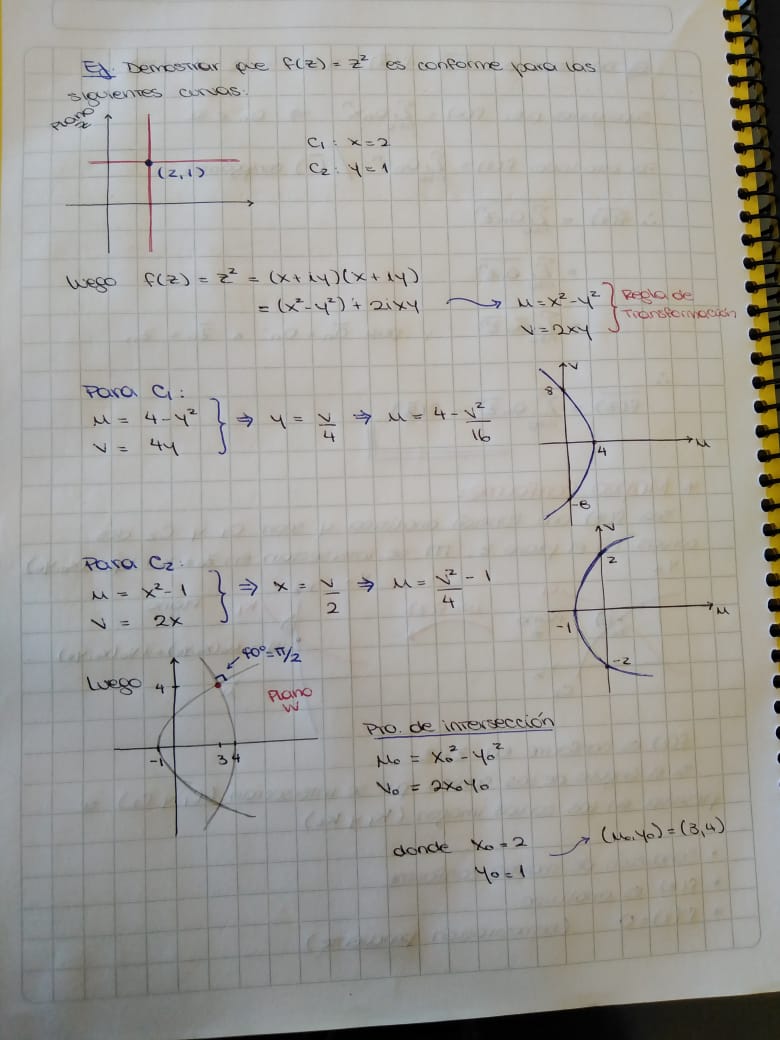 Ej: Demostrar que f(z) = z² es conforme para las
siguientes curvas:
Plano
z
(2,1)
C₁: x=2
C₂: y=1
Luego f(z) = z² = (x+iy)(x+iy)
= (x²-y²) + 2ixy
μ = x²-y²
v = 2xy
Regla de
Transformación
Para C₁:
μ = 4-y²
v = 4y
⇒ y = v/4 ⇒ μ = 4 - v²/16
v
8
4
μ
-8
Para C₂:
μ = x²-1
v = 2x
⇒ x = v/2 ⇒ μ = v²/4 - 1
v
2
-1
μ
-2
Luego
90°=π/2
4
Plano
W
-1
3 4
Pto. de intersección
μ₀ = x₀² - y₀²
v₀ = 2x₀y₀
donde x₀ = 2
y₀ = 1
(μ₀,y₀) = (3,4)